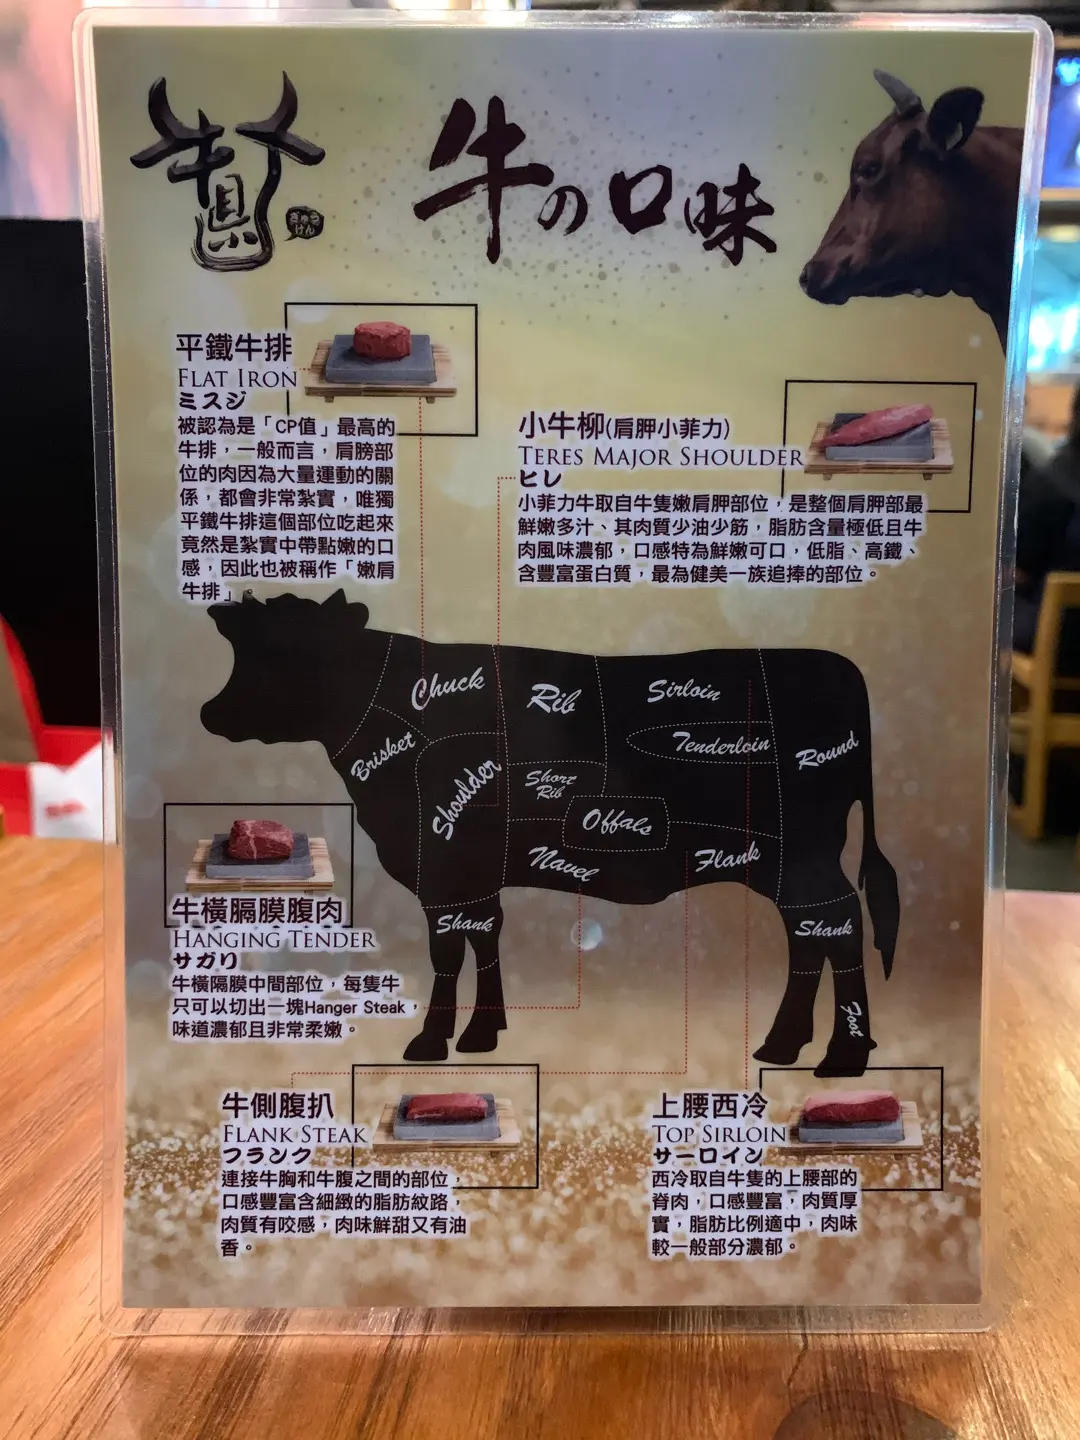 牛県
ぎゅう
けん
牛の口味
平鐵牛排
FLAT IRON
ミスジ
被認為是「CP值」最高的
牛排，一般而言，肩膀部
位的肉因為大量運動的關
係，都會非常紮實，唯獨
平鐵牛排這個部位吃起來
竟然是紮實中帶點嫩的口
感，因此也被稱作「嫩肩
牛排」。
小牛柳(肩胛小菲力)
TERES MAJOR SHOULDER
ヒレ
小菲力牛取自牛隻嫩肩胛部位，是整個肩胛部最
鮮嫩多汁、其肉質少油少筋，脂肪含量極低且牛
肉風味濃郁，口感特為鮮嫩可口，低脂、高鐵、
含豐富蛋白質，最為健美一族追捧的部位。
Chuck
Rib
Sirloin
Tenderloin
Round
Brisket
Shoulder
Short
Rib
Offals
Navel
Flank
Shank
Shank
Foot
牛橫膈膜腹肉
HANGING TENDER
サガリ
牛橫隔膜中間部位，每隻牛
只可以切出一塊Hanger Steak，
味道濃郁且非常柔嫩。
牛側腹扒
FLANK STEAK
フランク
連接牛胸和牛腹之間的部位，
口感豐富含細緻的脂肪紋路，
肉質有咬感，肉味鮮甜又有油
香。
上腰西冷
TOP SIRLOIN
サーロイン
西冷取自牛隻的上腰部的
脊肉，口感豐富，肉質厚
實，脂肪比例適中，肉味
較一般部分濃郁。